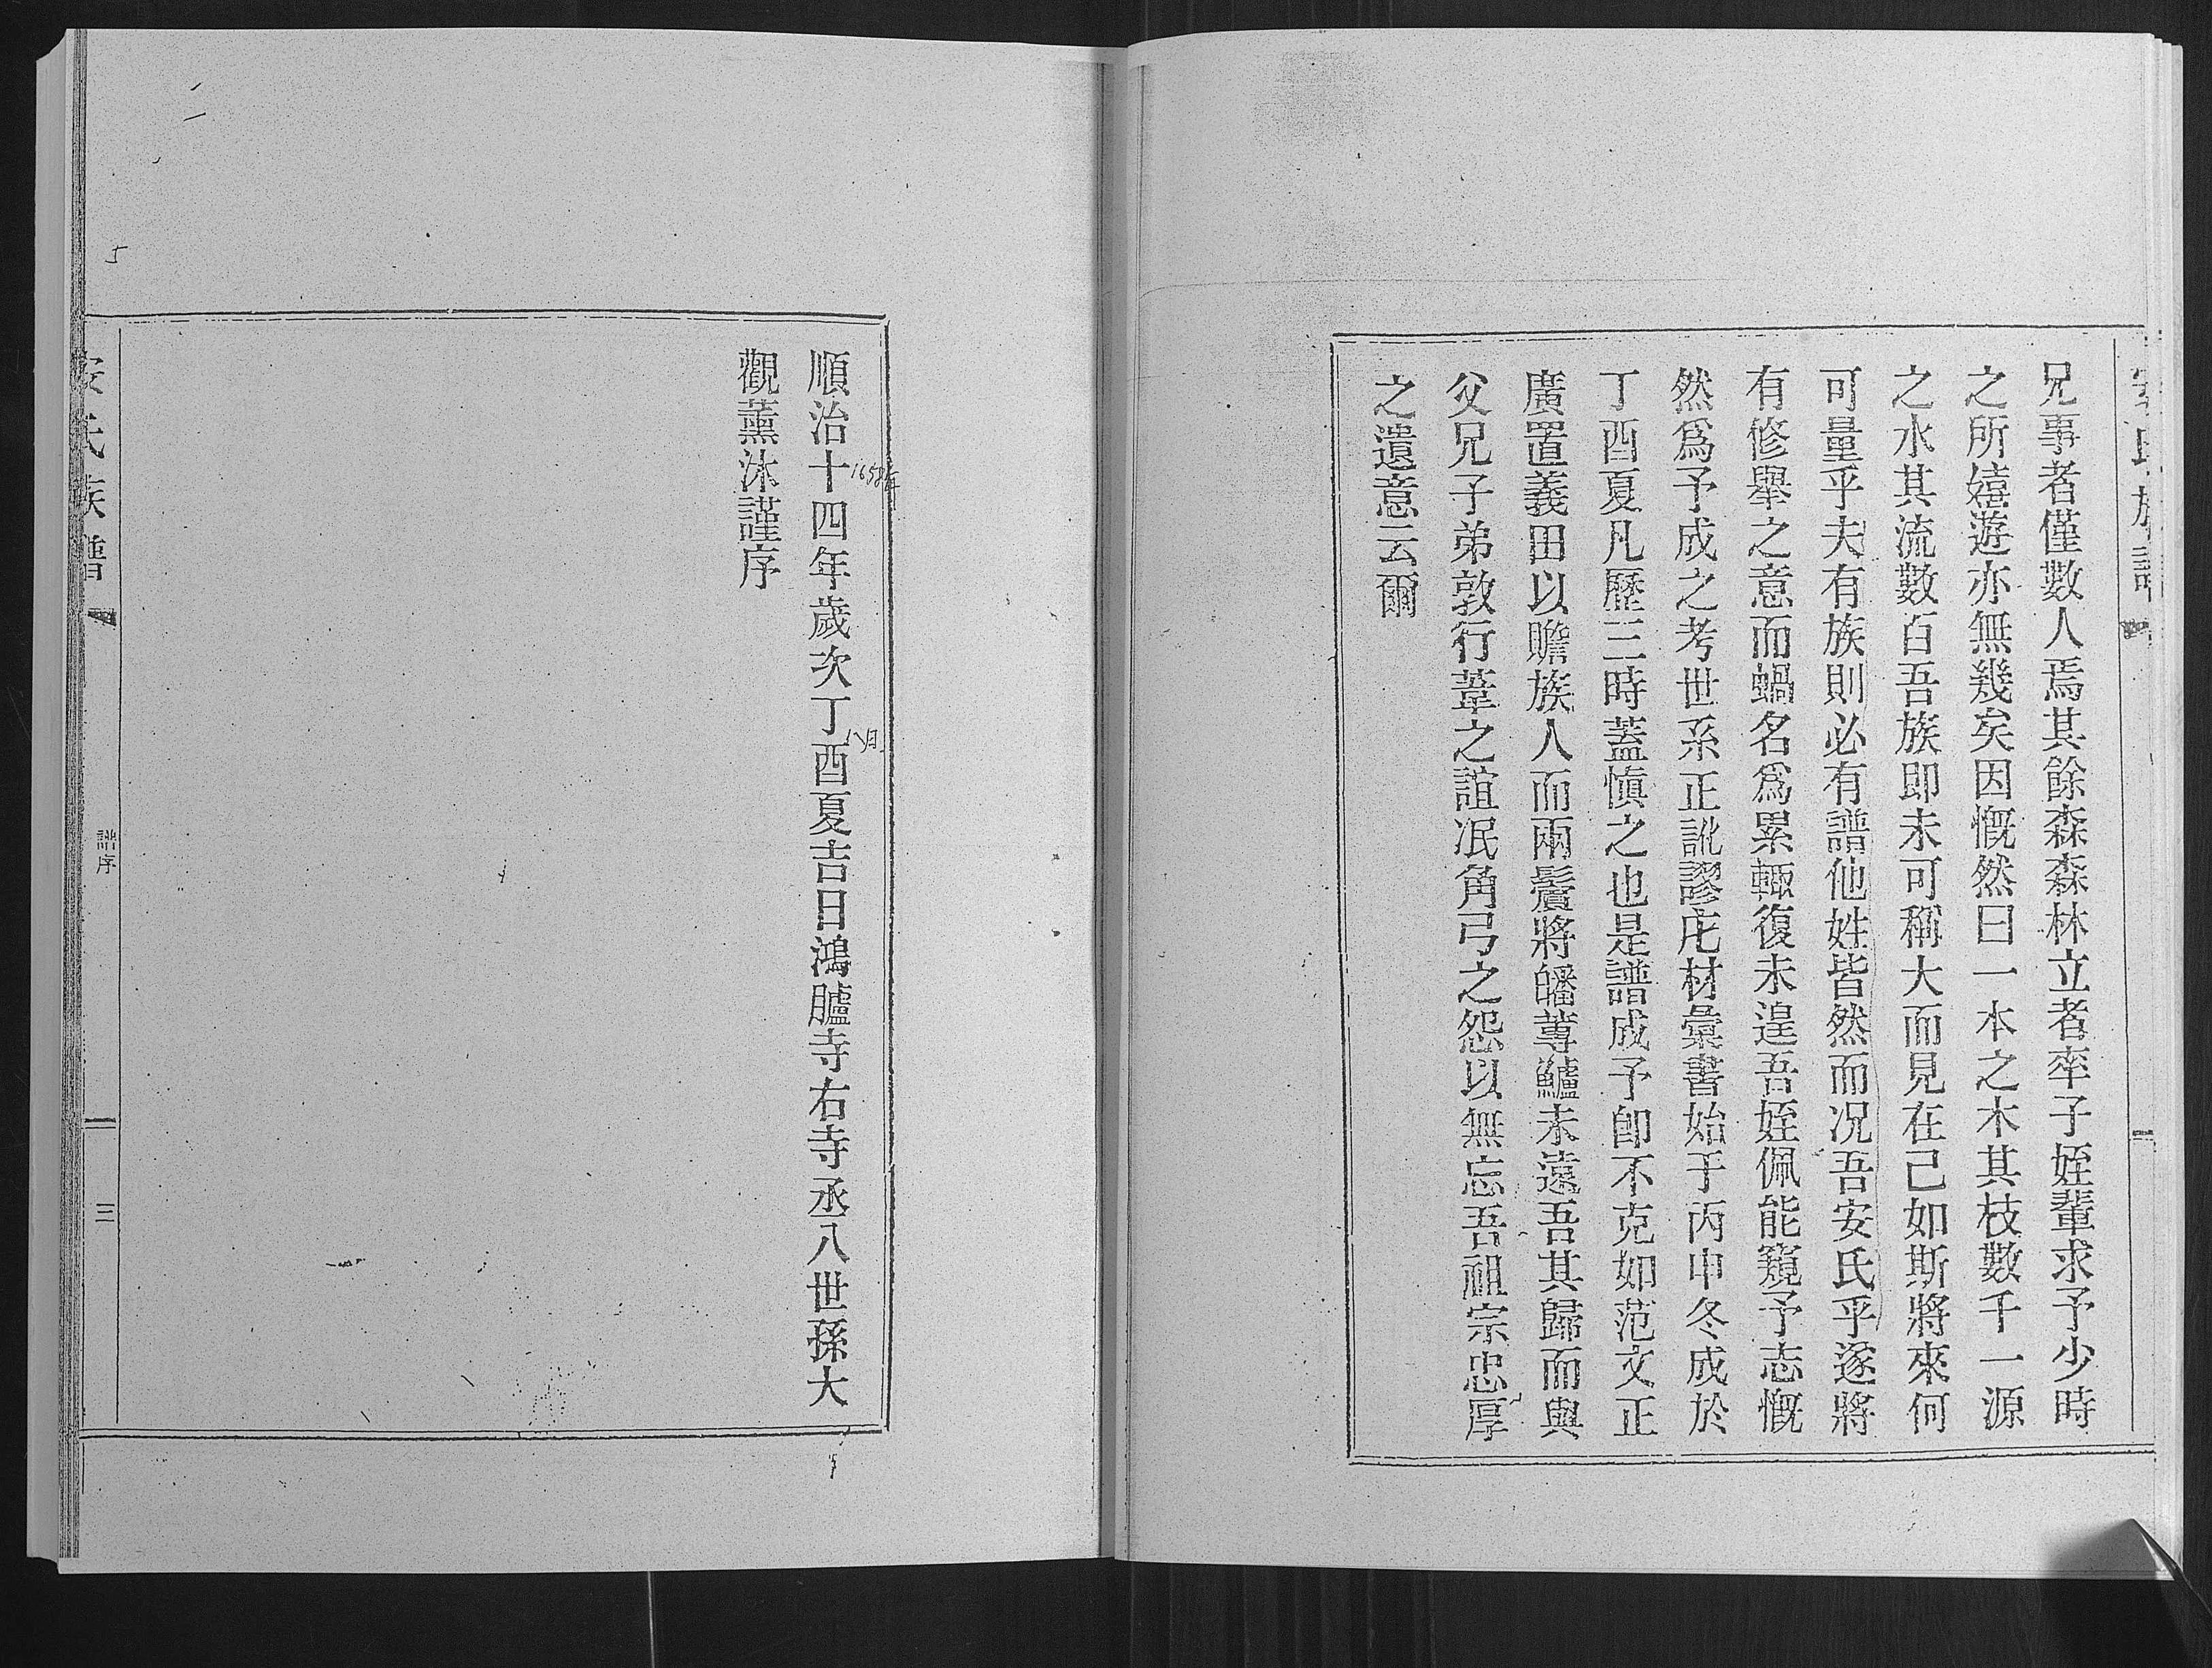 兄事者僅數人焉其餘森森林立者率子姪輩求予少時
之所嬉遊亦無幾矣因慨然曰一本之木其枝數千一源
之水其流數百吾族即未可稱大而見在已如斯將來何
可量乎夫有族則必有譜他姓皆然而况吾安氏乎遂將
有修舉之意而蝸名爲累輒復未遑吾姪佩能窺予志慨
然爲予成之考世系正訛謬庀材彙書始于丙申冬成於
丁酉夏凡歷三時蓋慎之也是譜成予卽不克如范文正
廣置義田以贍族人而兩鬢將皤蓴鱸未遠吾其歸而與
父兄子弟敦行葦之誼泯角弓之怨以無忘吾祖宗忠厚
之遺意云爾
順治十四年歲次丁酉夏吉日鴻臚寺右寺丞八世孫大
觀薰沐謹序
安氏族譜
譜序
三